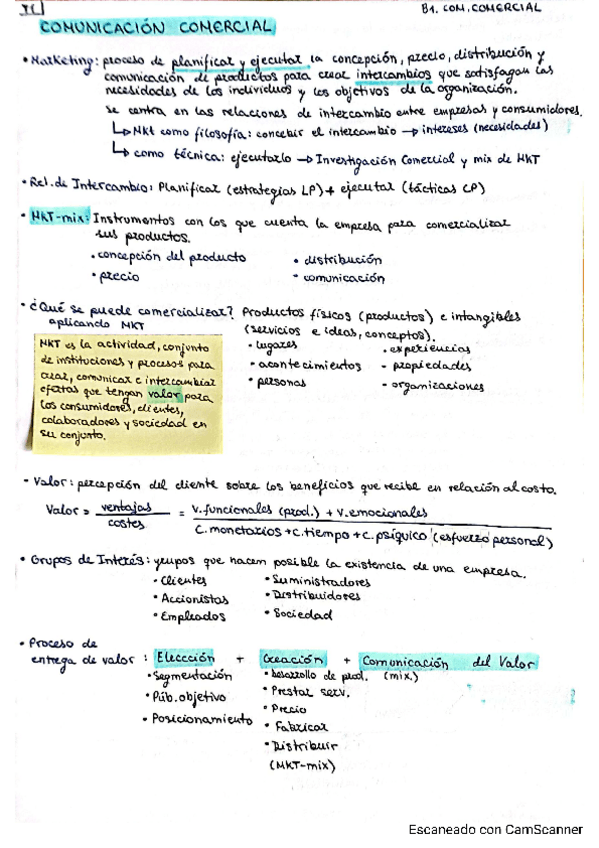 B1. COM. COMERCIAL
COMUNICACIÓN COMERCIAL
• Marketing: proceso de planificar y ejecutar la concepción, precio, distribución y
comunicación de productos para crear intercambios que satisfagan las
necesidades de los individuos y los objetivos de la organización.
Se centra en las relaciones de intercambio entre empresas y consumidores.
↳ Mkt como filosofía: concebir el intercambio → intereses (necesidades)
↳ como técnica: ejecutarlo → Investigación Comercial y mix de MKT
• Rel. de Intercambio: Planificar (estrategias LP) + ejecutar (tácticas CP)
• MKT-mix: Instrumentos con los que cuenta la empresa para comercializar
sus productos.
• concepción del producto • distribución
• precio • comunicación
• ¿Qué se puede comercializar? Productos físicos (productos) e intangibles
aplicando MKT (servicios e ideas, conceptos).
• lugares • experiencias
• acontecimientos • propiedades
• personas • organizaciones
MKT es la actividad, conjunto
de instituciones y procesos para
crear, comunicar e intercambiar
ofertas que tengan valor para
los consumidores, clientes,
colaboradores y sociedad en
su conjunto.
• Valor: percepción del cliente sobre los beneficios que recibe en relación al costo.
Valor = ventajas / costes = v. funcionales (prod.) + v. emocionales / c. monetarios + c. tiempo + c. psíquico (esfuerzo personal)
• Grupos de Interés: grupos que hacen posible la existencia de una empresa.
• Clientes • Suministradores
• Accionistas • Distribuidores
• Empleados • Sociedad
• Proceso de
entrega de valor: Elección + Creación + Comunicación del Valor
• Segmentación • Desarrollo de prod. (mix.)
• Púb. objetivo • Prestar serv.
• Posicionamiento • Precio
• Fabricar
• Distribuir
(MKT-mix)
Escaneado con CamScanner